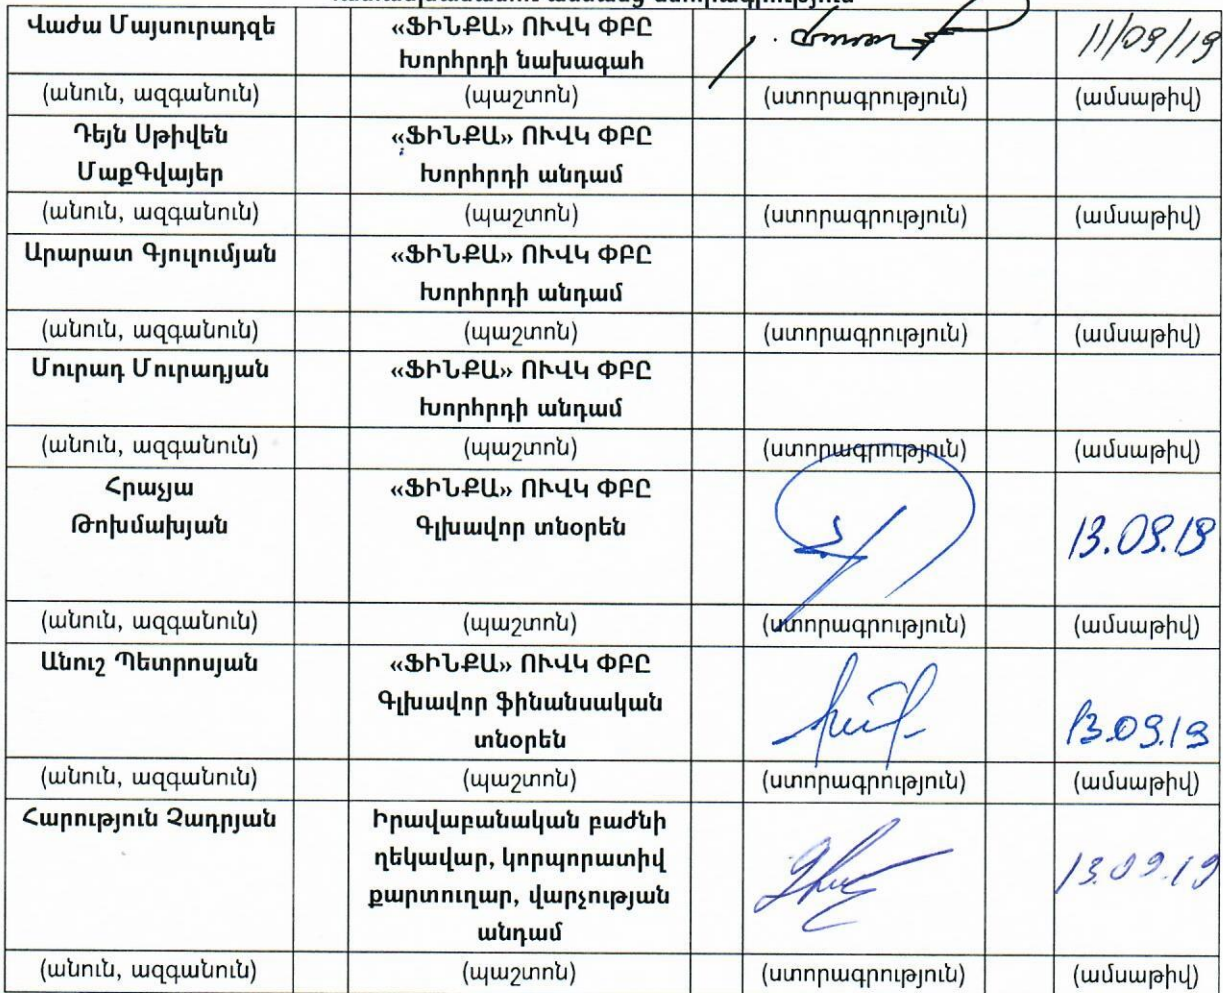 Վաժա Մայսուրաձզե «ՖԻՆՔԱ» ՈՒՎԿ ՓԲԸ 11/09/19
Խորհրդի նախագահ
(անուն, ազգանուն) (պաշտոն) (ստորագրություն) (ամսաթիվ)
Դեյն Սթիվեն «ՖԻՆՔԱ» ՈՒՎԿ ՓԲԸ
ՄաքԳվայեր Խորհրդի անդամ
(անուն, ազգանուն) (պաշտոն) (ստորագրություն) (ամսաթիվ)
Արարատ Գյուլումյան «ՖԻՆՔԱ» ՈՒՎԿ ՓԲԸ
Խորհրդի անդամ
(անուն, ազգանուն) (պաշտոն) (ստորագրություն) (ամսաթիվ)
Մուրադ Մուրադյան «ՖԻՆՔԱ» ՈՒՎԿ ՓԲԸ
Խորհրդի անդամ
(անուն, ազգանուն) (պաշտոն) (ստորագրություն) (ամսաթիվ)
Հրաչյա «ՖԻՆՔԱ» ՈՒՎԿ ՓԲԸ
Թոխմախյան Գլխավոր տնօրեն 13.09.19
(անուն, ազգանուն) (պաշտոն) (ստորագրություն) (ամսաթիվ)
Անուշ Պետրոսյան «ՖԻՆՔԱ» ՈՒՎԿ ՓԲԸ
Գլխավոր ֆինանսական 13.09.19
տնօրեն
(անուն, ազգանուն) (պաշտոն) (ստորագրություն) (ամսաթիվ)
Հարություն Չադրյան Իրավաբանական բաժնի
ղեկավար, կորպորատիվ 13.09.19
քարտուղար, վարչության
անդամ
(անուն, ազգանուն) (պաշտոն) (ստորագրություն) (ամսաթիվ)